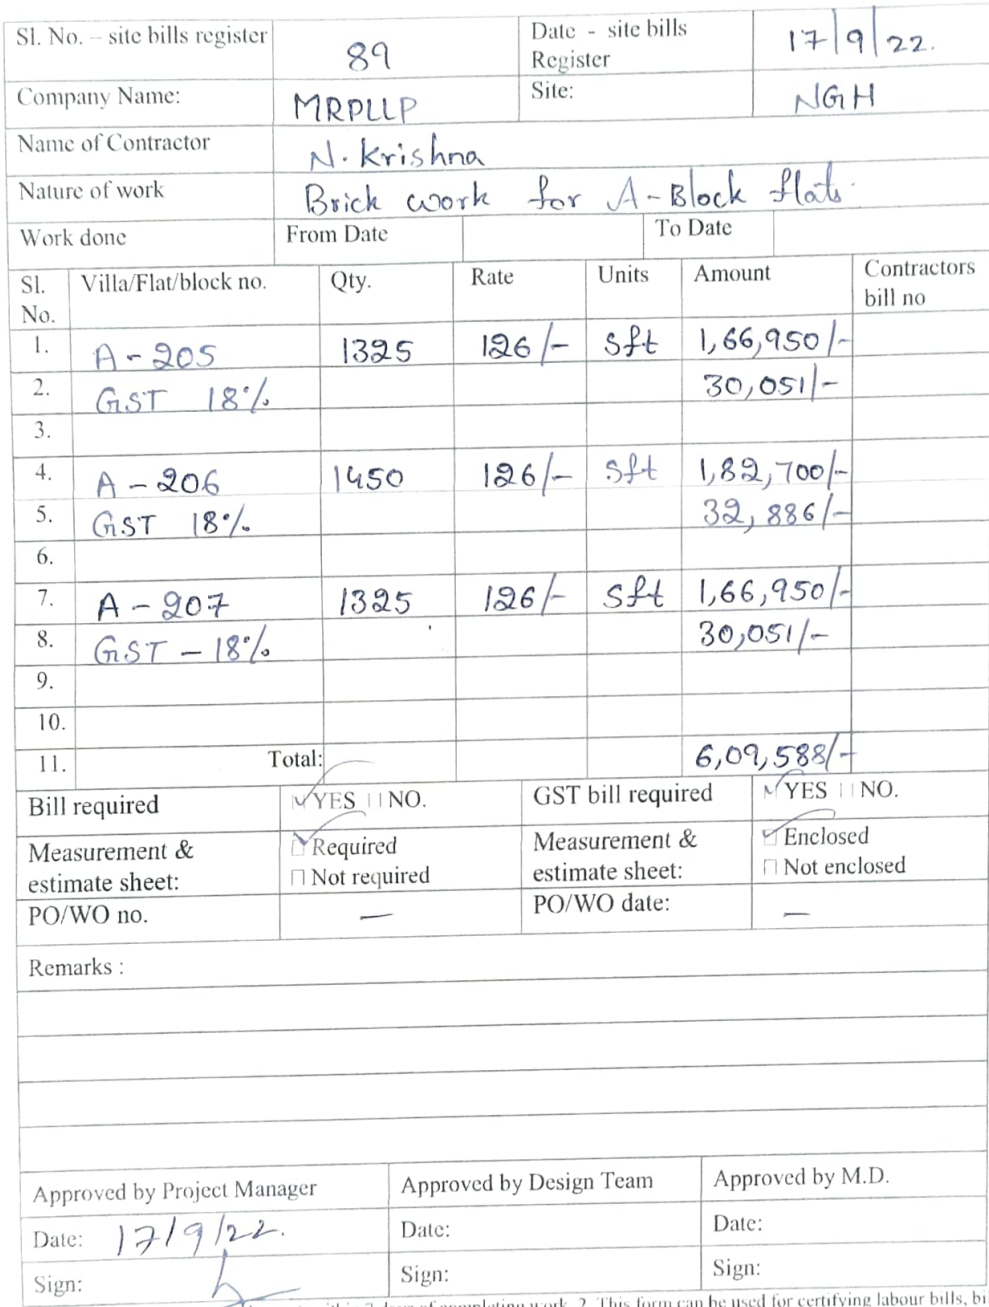 Sl. No. – site bills register 89 Date - site bills Register 17/9/22.
Company Name: MRPLLP Site: NGH
Name of Contractor N. Krishna
Nature of work Brick work for A-Block flats.
Work done From Date To Date
Sl. No. Villa/Flat/block no. Qty. Rate Units Amount Contractors bill no
1. A-205 1325 126/- sft 1,66,950/-
2. GST 18% 30,051/-
3.
4. A-206 1450 126/- sft 1,82,700/-
5. GST 18% 32,886/-
6.
7. A-207 1325 126/- sft 1,66,950/-
8. GST - 18% 30,051/-
9.
10.
11. Total: 6,09,588/-
Bill required YES NO. GST bill required YES NO.
Measurement & estimate sheet: Required Not required Measurement & estimate sheet: Enclosed Not enclosed
PO/WO no. — PO/WO date: —
Remarks :
Approved by Project Manager Approved by Design Team Approved by M.D.
Date: 17/9/22. Date: Date:
Sign: Sign: Sign:
of completing work. 2. This form can be used for certifying labour bills,